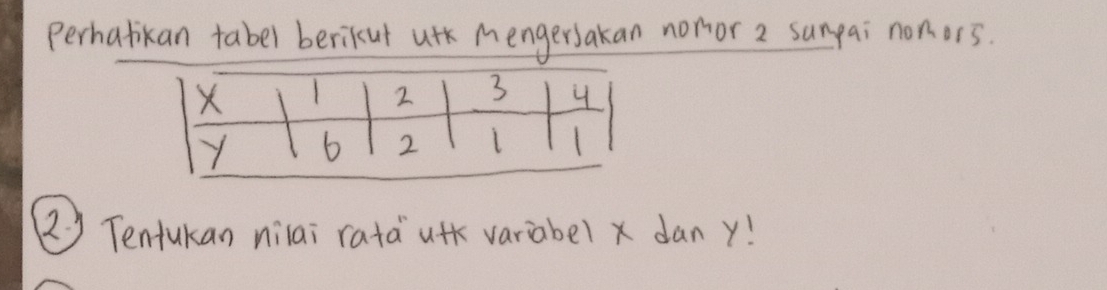 Perhatikan tabel berikut utk mengerjakan nomor 2 sampai nomor 5.
X 1 2 3 4
Y 6 2 1 1
2.) Tentukan nilai rata" utk variabel x dan y!